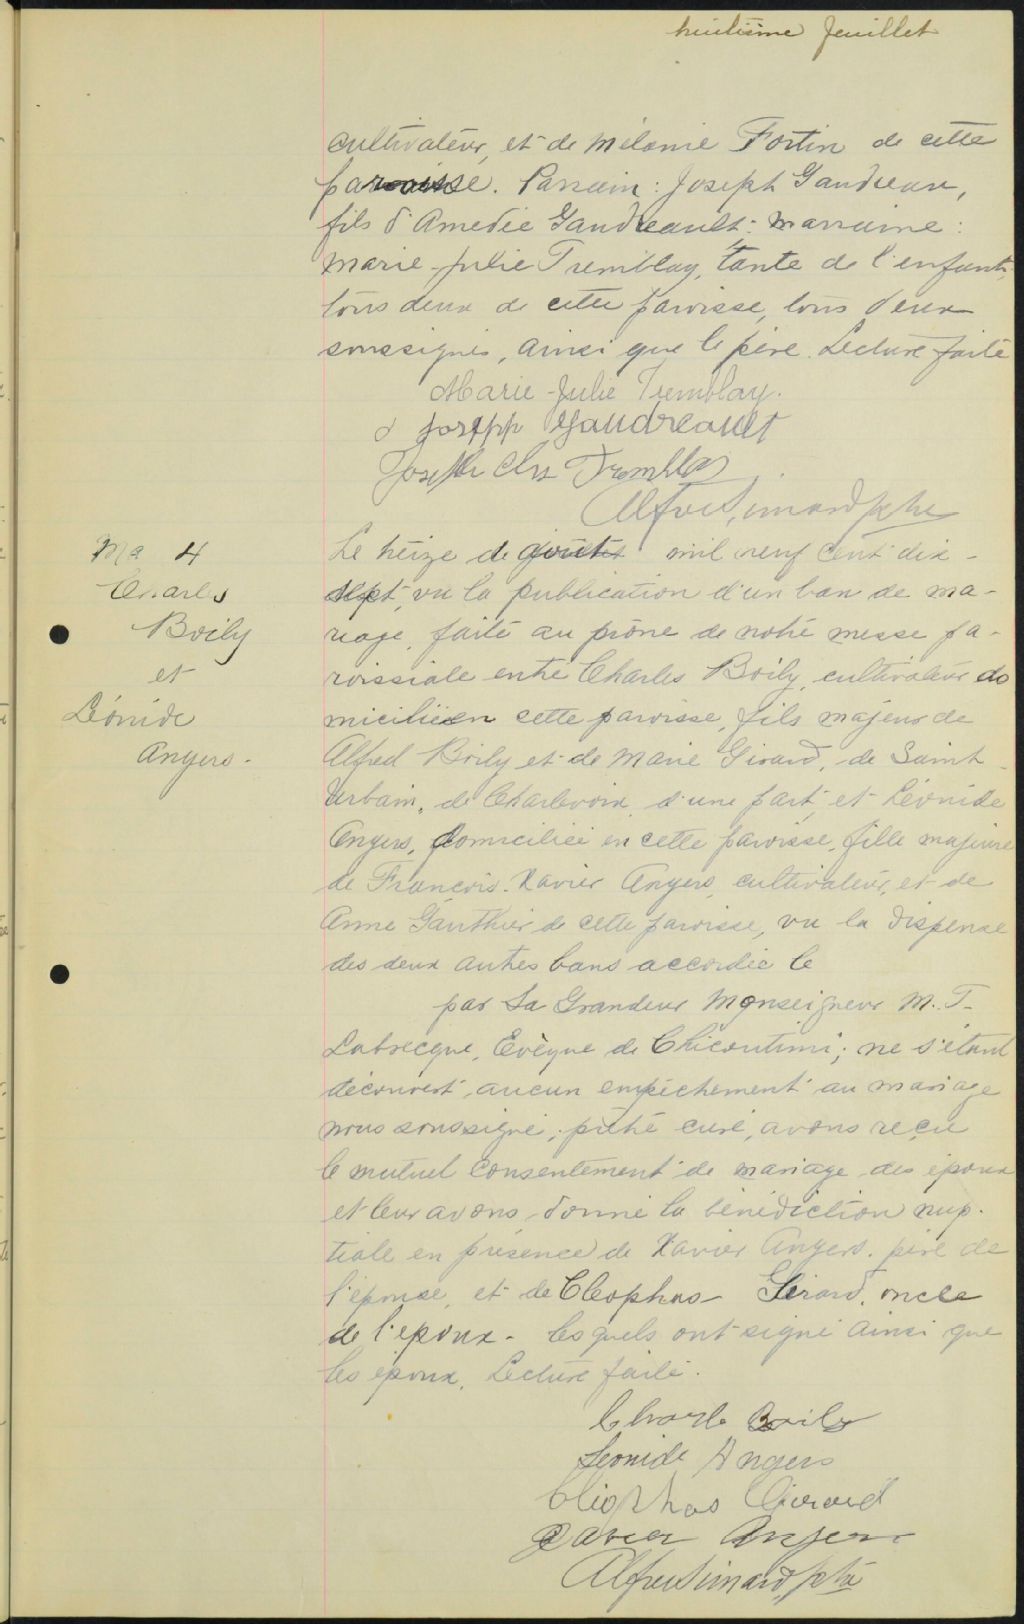 huitième feuillet
cultivateur, et de Mélanie Fortin de cette
paroisse. Parrain: Joseph Gaudreau,
fils d'Amedée Gaudreault: Marraine:
Marie-Julie Tremblay, tante de l'enfant,
tous deux de cette paroisse, tous deux
soussignés, ainsi que le père. Lecture faite
Marie-Julie Tremblay.
Joseph Gaudreault
Joseph Chs Tremblay
Alfred Simard ptre
Ma 4
Charles
Boily
et
Léonide
Angers.
Le treize de août mil neuf cent dix-
sept, vu la publication d'un ban de ma-
riage, faite au prône de notre messe pa-
roissiale entre Charles Boily, cultivateur do
micilié en cette paroisse, fils majeur de
Alfred Boily et de Marie Girard, de Saint
Urbain, de Charlevoix, d'une part, et Léonide
Angers, domiciliée en cette paroisse, fille majeure
de François-Xavier Angers, cultivateur, et de
Anne Gauthier de cette paroisse, vu la dispense
des deux autres bans accordée le
par Sa Grandeur Monseigneur M. T.
Labrecque, Evèque de Chicoutimi; ne s'étant
découvert aucun empêchement au mariage
nous soussigné, prêtre curé, avons reçu
le mutuel consentement de mariage des époux
et leur avons donné la bénédiction nup-
tiale en présence de Xavier Angers. père de
l'épouse, et de Cléophas Girard, oncle
de l'époux - lesquels ont signé ainsi que
les époux. Lecture faite.
Charle Boily
Leonide Angers
Cléophas Girard
Xavier Angers
Alfred Simard, ptre